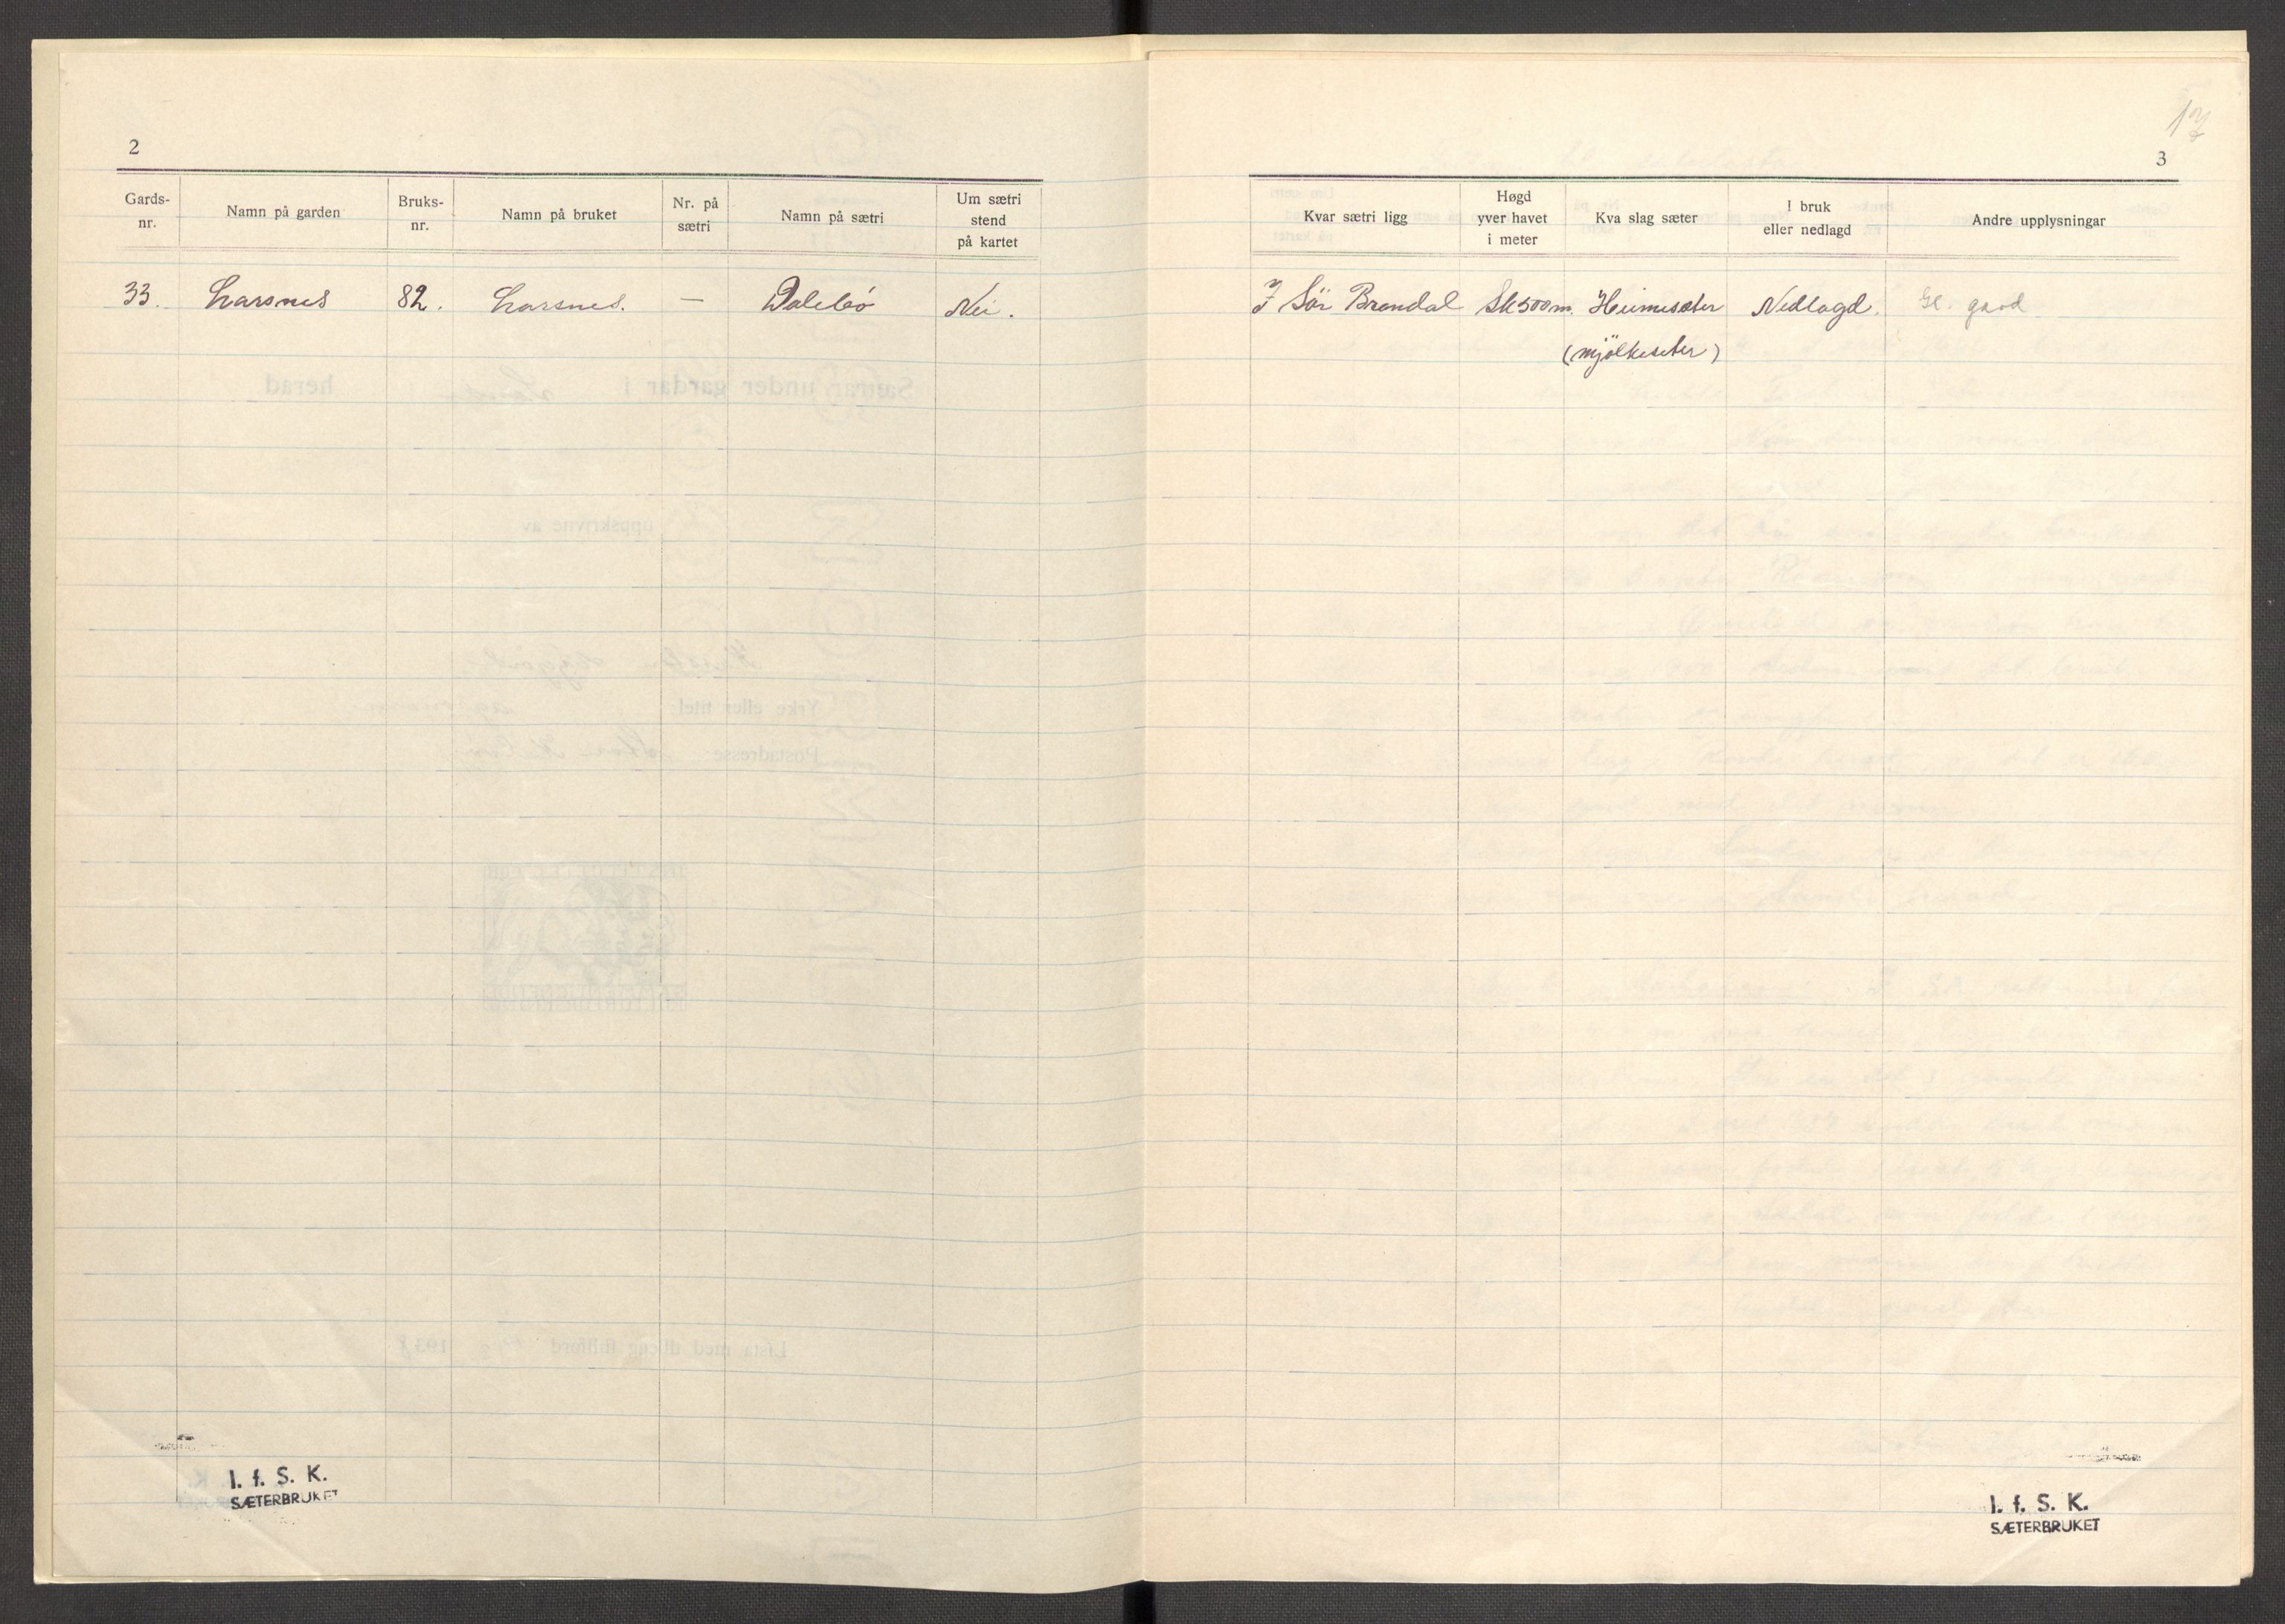 2
Gards-nr.
Namn på garden
Bruks-nr.
Namn på bruket
Nr. på sætri
Namn på sætri
Um sætri stend på kartet
33. Larsnes 82. Larsnes. — Dalebö Nei.
I. f. S. K.
SÆTERBRUKET
17
3
Kvar sætri ligg
Høgd yver havet i meter
Kva slag sæter
I bruk eller nedlagd
Andre upplysningar
I Sör Brandal 500 m. Heimeseter Nedlagd. Gl. gard
(mjölkeseter)
I. f. S. K.
SÆTERBRUKET